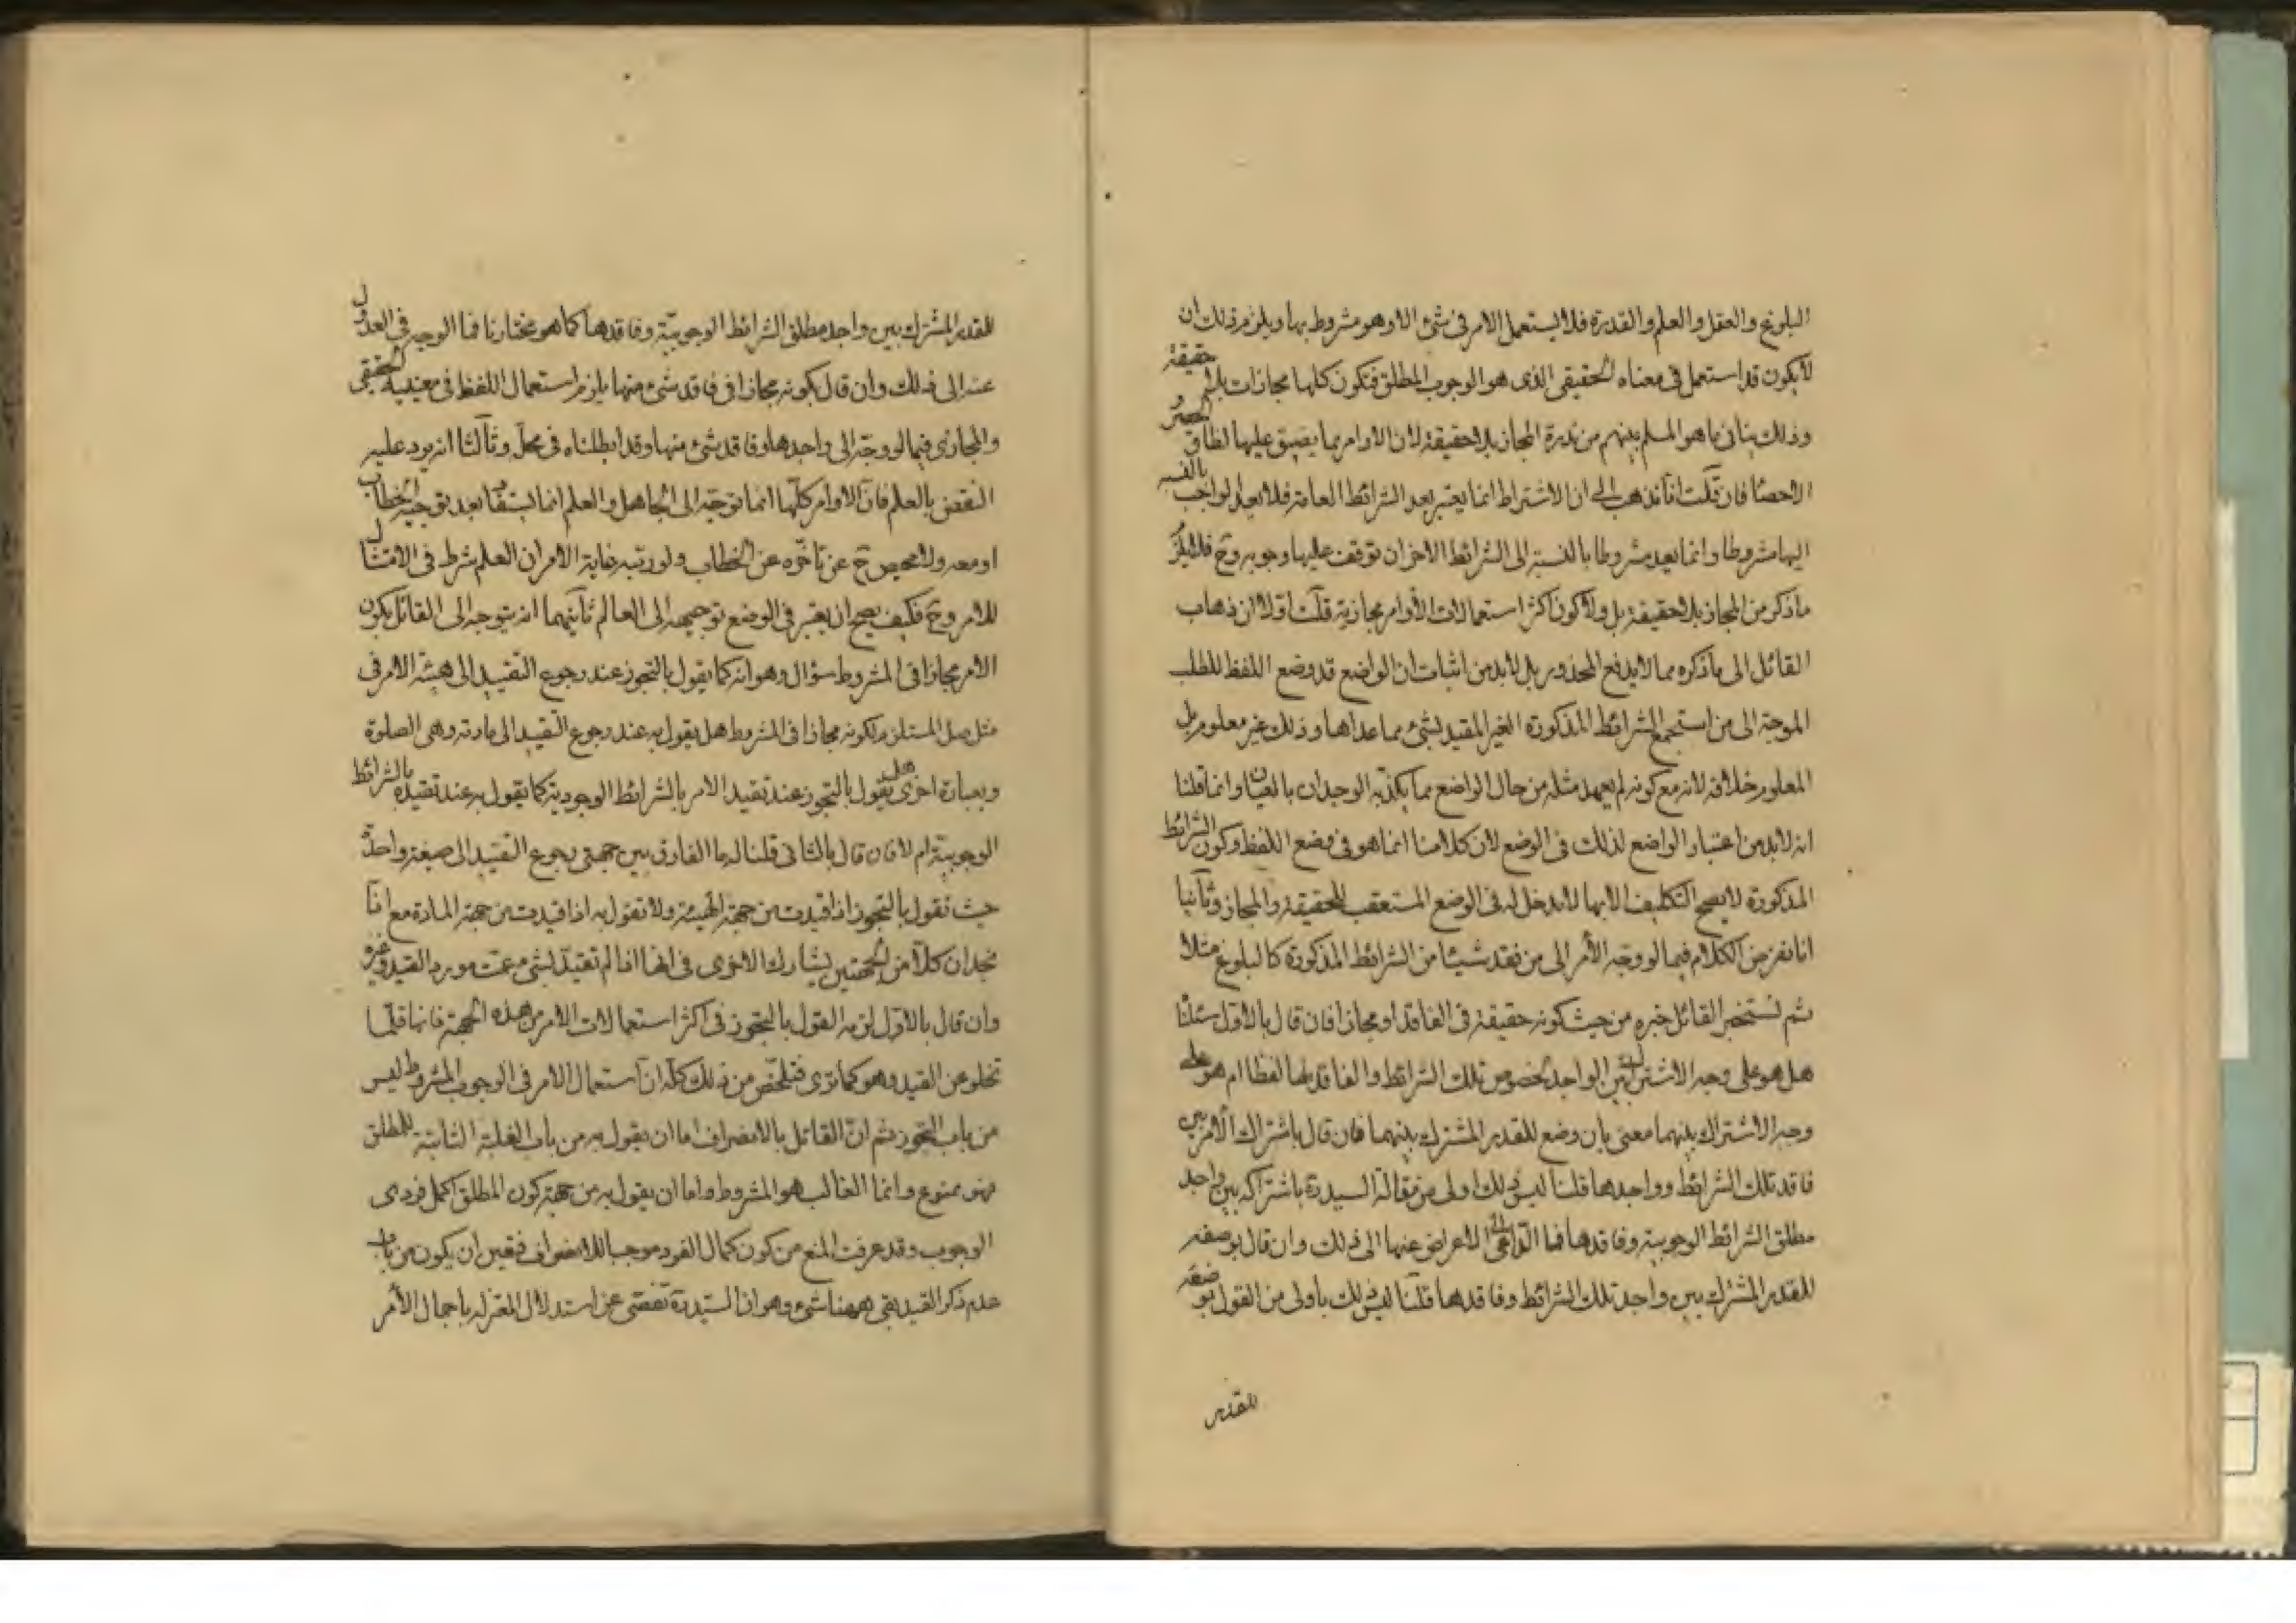 البلوغ والعقل والعلم والقدرة فلا يستعمل الامر فى شئ الا وهو مشروط بها ويلزم ذلك ان
لا يكون قد استعمل فى معناه الحقيقى الذى هو الوجوب المطلق فتكون كلها مجازات بلا حقيقة
وذلك ينافى ما هو المسلم بينهم من ندرة المجاز بلا حقيقة لان الاوامر مما يضيق عليها نطاق الحصر و
الاحصاء فان قلت انا نذهب الى ان الاشتراط انما يعتبر بعد الشرائط العامة فلا يعد الواجب بالنسبة
اليها مشروطا وانما يعد مشروطا بالنسبة الى الشرائط الاخر ان توقف عليها وجوبه وح فلا يلزم
ما ذكر من المجاز بلا حقيقة بل ولا كون اكثر استعمالات الأوامر مجازية قلت اولا ان ذهاب
القائل الى ما ذكره مما لا يدفع المحذور بل لابد من اثبات ان الواضع قد وضع اللفظ للطلب
الموجه الى من استجمع الشرائط المذكورة الغير المقيد بشئ مما عداها وذلك غير معلوم بل
المعلوم خلافه لانه مع كونه لم يعهد مثله من حال الواضع مما يكذبه الوجدان بالعيان وانما قلنا
انه لابد من اعتبار الواضع لذلك فى الوضع لان كلامنا انما هو فى وضع اللفظ وكون الشرائط
المذكورة لا يصح التكليف الا بها لا دخل له فى الوضع المستعقب للحقيقة والمجاز وثانيا
انا نفرض الكلام فيما لو وجه الأمر الى من فقد شيئا من الشرائط المذكورة كالبلوغ مثلا
ثم نستخبر القائل خبره من حيث كونه حقيقة فى الفاقد او مجازا فان قال بالاول سئلنا
هل هو على وجه الاشتراك بين الواجد لخصوص تلك الشرائط والفاقد لها لفظا ام هو على
وجه الاشتراك بينهما معنى بان وضع للقدر المشترك بينهما فان قال باشتراك الأمر بين
فاقد تلك الشرائط وواجدها قلنا ليس ذلك اولى من مقالة السيد ره باشتراكه بين واجد
مطلق الشرائط الوجوبية وفاقدها فما الداعى الى الاعراض عنها الى ذلك وان قال بوضعه
للقدر المشترك بين واجد تلك الشرائط وفاقدها قلنا ليس ذلك باولى من القول بوضعه
للقدر
للقدر المشترك بين واجد مطلق الشرائط الوجوبية وفاقدها كما هو مختارنا فما الوجه فى العدول
عنه الى ذلك وان قال بكونه مجازا فى فاقد شئ منها يلزم استعمال اللفظ فى معنييه الحقيقى
والمجازى فيما لو وجه الى واجدها وفاقد شئ منها وقد ابطلناه فى محله وثالثا انه يرد عليه
النقض بالعلم فان الاوامر كلها انما توجه الى الجاهل والعلم انما يستفاد بعد توجيه الخطاب
او معه ولا محيص ح عن تأخره عن الخطاب ولو رتبة غاية الامر ان العلم شرط فى الامتثال
للامر وح فكيف يصح ان يعتبر فى الوضع توجيهه الى العالم ثانيهما انه يتوجه الى القائل بكون
الامر مجازا فى المشروط سؤال وهو انه كما يقول بالتجوز عند رجوع التقييد الى هيئة الامر فى
مثل صل المستلزم لكونه مجازا فى المشروط هل يقول به عند رجوع التقييد الى مادته وهى الصلوة
وبعبارة اخرى هل يقول بالتجوز عند تقييد الامر بالشرائط الوجودية كما يقول به عند تقييده بالشرائط
الوجوبية ام لا فان قال بالثانى قلنا له ما الفارق بين جهتى رجوع التقييد الى صيغة واحدة
حيث تقول بالتجوز اذا قيدت من جهة الهيئة ولا تقول به اذا قيدت من جهة المادة مع انا
نجد ان كلا من الجهتين يشارك الاخرى فى انها اذا لم تقيد بشئ عمت مورد القيد وغيره
وان قال بالاول لزمه القول بالتجوز فى اكثر استعمالات الامر من هذه الجهة فانها قلما
تخلو عن القيد وهو كما ترى فتلخص من ذلك كله ان استعمال الامر فى الوجوب المشروط ليس
من باب التجوز ثم ان القائل بالانصراف اما ان يقول به من باب الغلبة الثابتة للمطلق
فهو ممنوع وانما الغالب هو المشروط واما ان يقول به من جهة كون المطلق اكمل فردى
الوجوب وقد عرفت المنع من كون كمال الفرد موجبا للانصراف فتعين ان يكون من باب
عدم ذكر القيد بقى ههنا شئ وهو ان السيد ره تفصى عن استدلال المعتزله باجمال الأمر